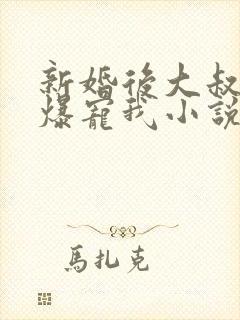 新婚後大叔
爆寵我小說
馬扎克